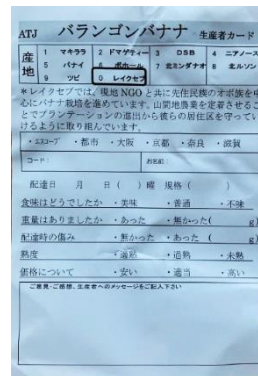 ATJ バランゴンバナナ 生産者カード
産地 1 マキララ 2 ドマゲティー 3 DSB 4 ニアノース
5 パナイ 6 ボホール 7 北ミンダナオ 8 北ルソン
9 ツピ 0 レイクセブ
*レイクセブでは、現地NGOと共に先住民族のオボ族を中
心にバナナ栽培を進めています。山間地農業を定着させるこ
とでプランテーションの進出から彼らの居住区を守ってい
けるように取り組んでいます。
・エスコープ ・都市 ・大阪 ・京都 ・奈良 ・滋賀
コード: お名前:
配達日 月 日( )曜 規格( )
食味はどうでしたか ・美味 ・普通 ・不味
重量はありましたか ・あった ・無かった( g)
配達時の傷み ・無かった ・あった( g)
熟度 ・適熟 ・過熟 ・未熟
価格について ・安い ・適当 ・高い
ご意見・ご感想、生産者へのメッセージをご記入下さい